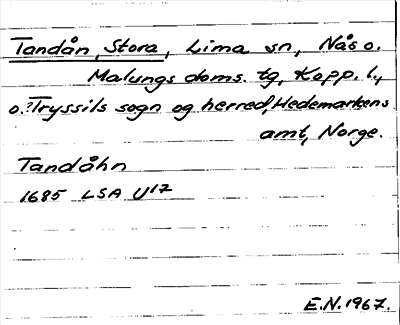 Tandån, Stora, Lima sn, Nås o.
Malungs doms. tg, Kopp. l.,
o. Tryssils sogn og herred, Hedemarkens
amt, Norge.
Tandåhn
1685 LSA U17
E.N. 1967.